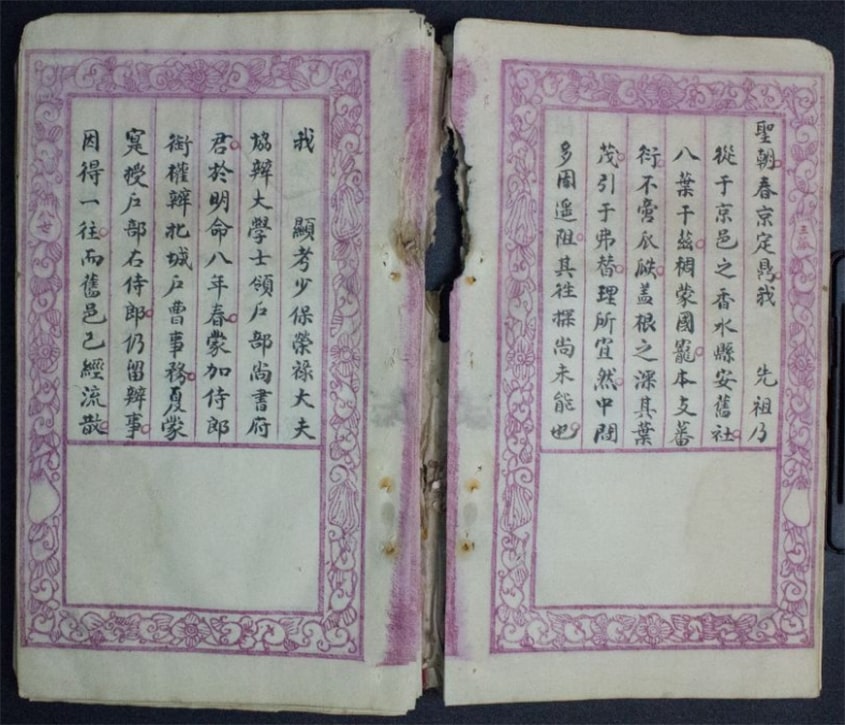 聖朝春京定鼎我 先祖乃
從于京邑之香水縣安舊社
八葉于茲稠蒙國寵本支蕃
衍不啻瓜瓞蓋根之深其葉
茂引于弗替理所宜然中間
多因遥阻其往探尚未能也
我 顯考少保榮祿大夫
協辦大學士領戶部尚書府
君於明命八年春蒙加侍郎
銜權辦北城戶曹事務夏蒙
寔授戶部右侍郎仍留辦事
因得一往而舊邑已經流散